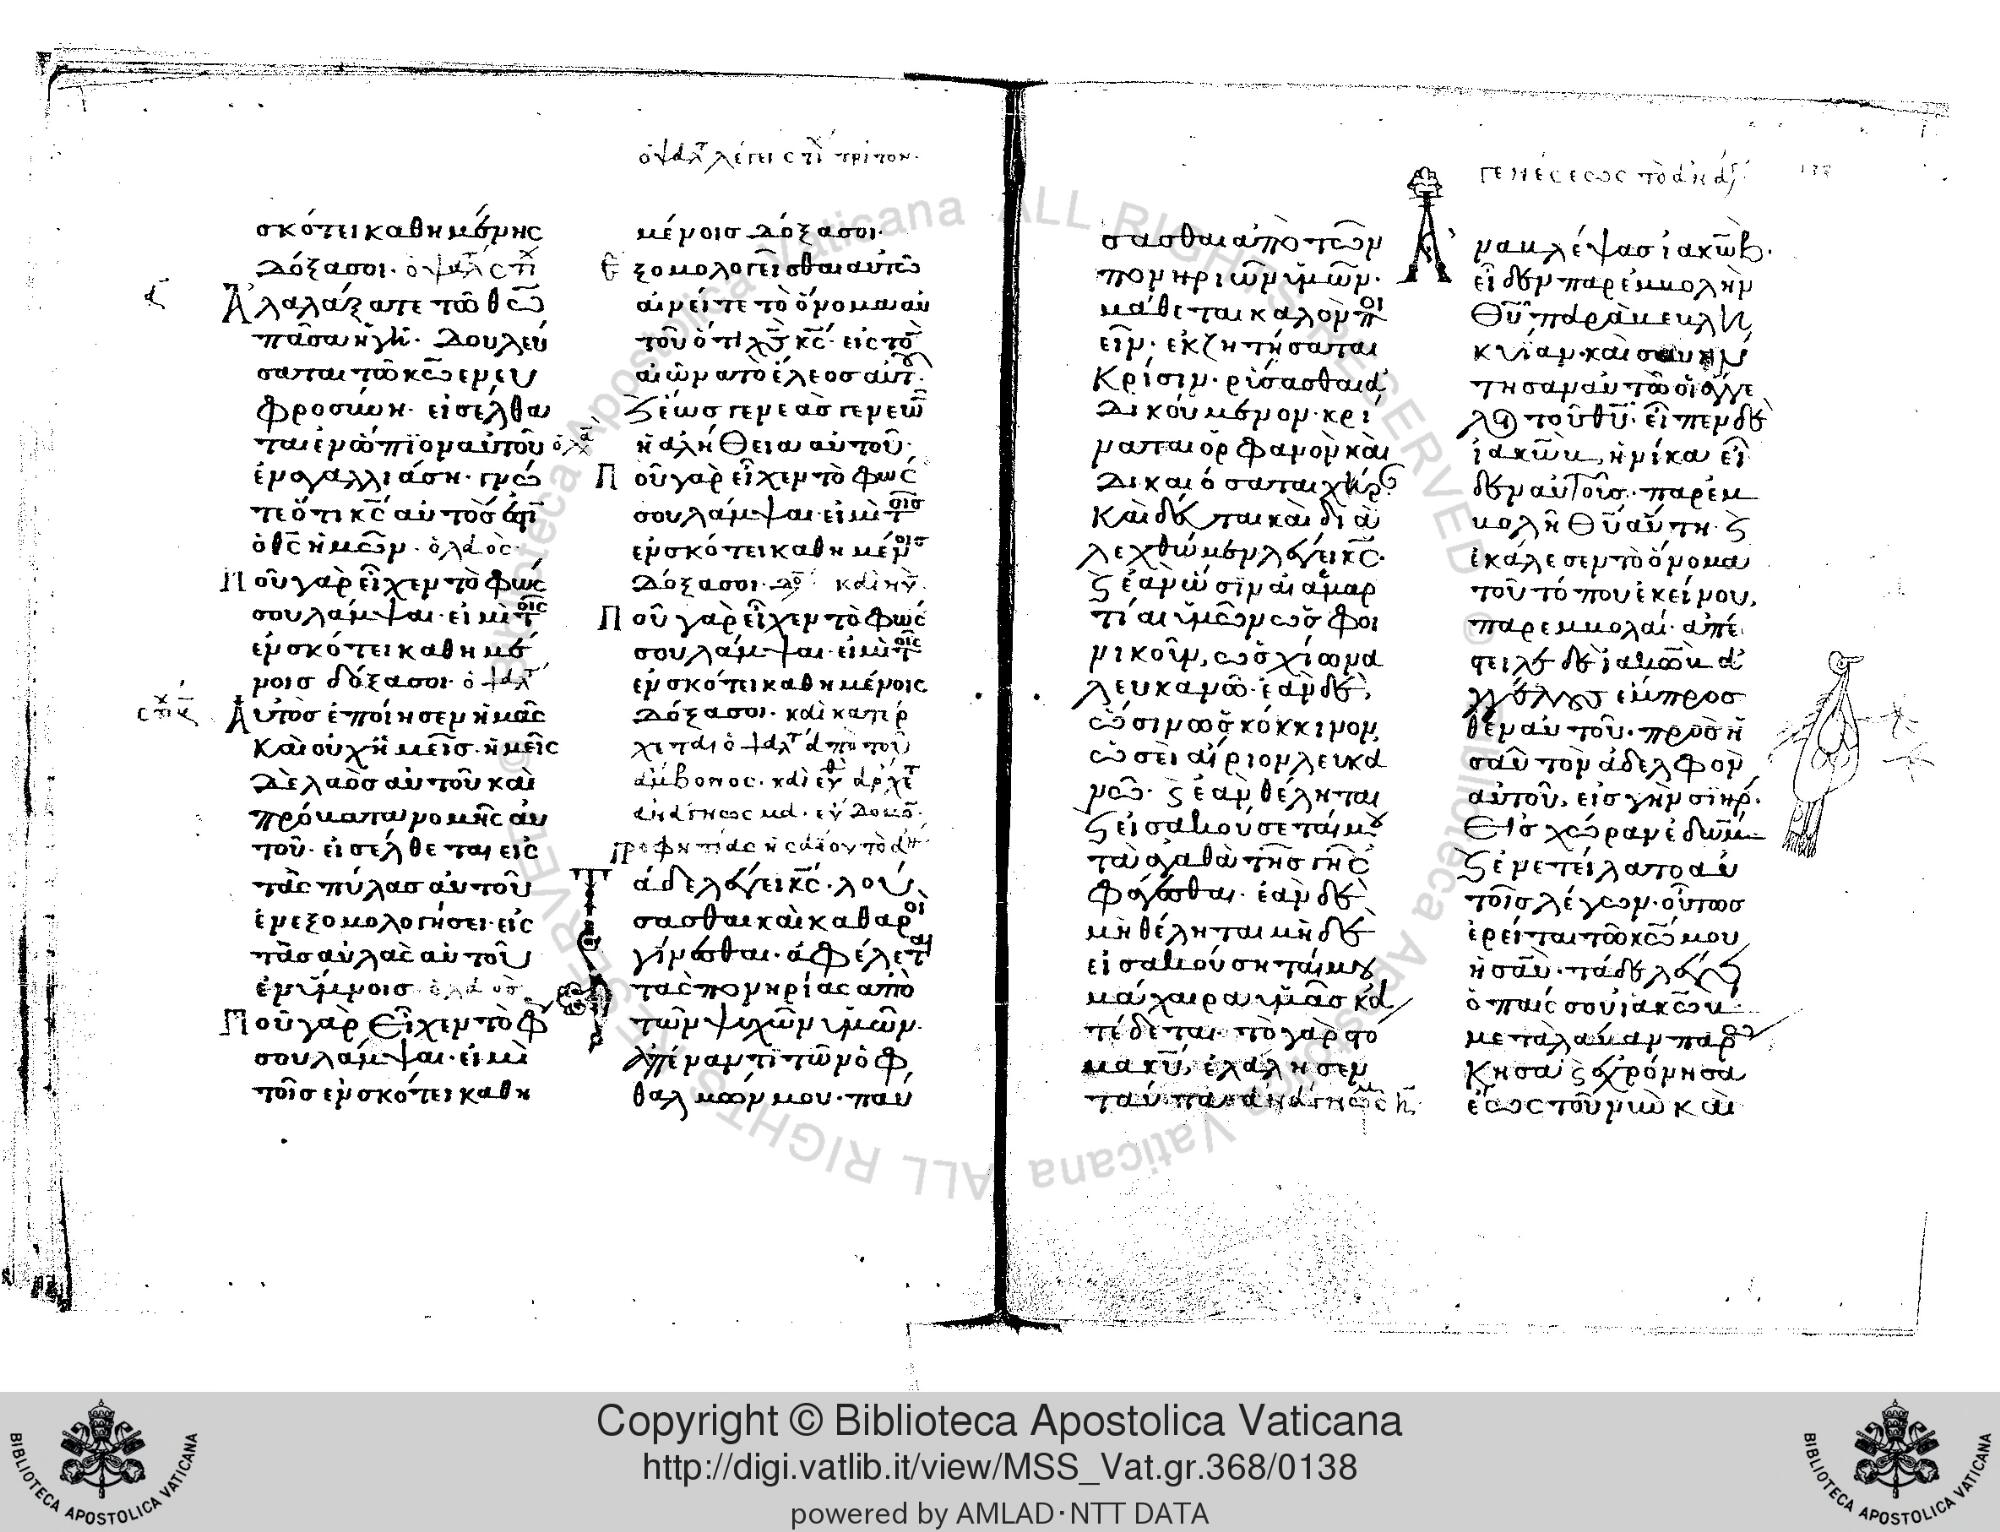 ὁ ψάλτ λέγει στι τρίτον·
σκότει καθημένης
Δόξασοι· ὁ ψάλτ στι
Ἀλαλάξατε τῶ θεῶ
πᾶσα ἡ γῆ· Δουλεύ
σαται τῶ κῶ ἐν ευ
φροσύνη· εἰσέλθα
ται ἐνώπιον αὐτοῦ
ἐν ἀγαλλιάση· γνῶ
τε ὅτι κς αὐτός ἐστι
ὁ θς ἡμῶν· ὁ λαὸς·
Ποῦ γὰρ εἶχεν τὸ φῶς
σου λάμψαι· εἰ μὶ τοῖς
ἐν σκότει καθημέ
νοις δόξασοι· ὁ ψάλτ
Αὐτὸς ἐποίησεν ἡμᾶς
Καὶ οὐχ ἡμεῖς· ἡμεῖς
Δὲ λαὸσ αὐτοῦ καὶ
πρόματα νομῆς αὐ
τοῦ· εἰσέλθεται εἰς
τὰς πύλασ αὐτοῦ
ἐν ἐξομολογήσει· εἰς
τὰσ αὐλὰς αὐτοῦ
ἐν ὕμνοισ ὁ λαὸσ
Ποῦ γὰρ εἶχεν τὸ φ
σου λάμψαι· εἰ μὶ
τοῖσ ἐν σκότει καθη
μένοισ Δόξασοι·
Ἐξομολογεῖσθαι αὐτῶ
αἰνεῖτε τὸ ὄνομα αὐ
τοῦ ὅτι χς κς· εἰς τὸ
αἰῶνα τὸ ἔλεοσ αὐτ·
ϛ ἕωσ γενεὰσ γενεῶ
ἡ ἀλήθεια αὐτοῦ·
Ποῦ γὰρ εἶχεν τὸ φῶς
σου λάμψαι· εἰ μὶ τοῖσ
ἐν σκότει καθημένοισ
Δόξασοι· Δο καὶ νῦν
Ποῦ γὰρ εἶχεν τὸ φῶς
σου λάμψαι· εἰ μὶ τοῖς
ἐν σκότει καθημένοις
Δόξασοι· καὶ κατέρ
χεται ὁ ψάλτ ἀπὸ τοῦ
ἄμβονος· καὶ εὐθ ἄρχετ
προφητίας ἡσαΐου τὸ ἀν
Τάδε λέγει κς· λού
σασθαι καὶ καθαροὶ
γίνεσθαι· ἀφέλεται
τὰς πονηρίας ἀπὸ
τῶν ψυχῶν ὑμῶν·
ἀπέναντι τῶν ὀφ
θαλμῶν μου· παύ
σασθαι ἀπὸ τῶν
πονηριῶν ὑμῶν·
μάθεται καλὸν ποι
εῖν· ἐκζητήσαται
Κρίσιν· ρύσασθαι ἀ
Δικούμενον· κρί
ναται ὀρφανὸν καὶ
Δικαιόσαται χήραν
Καὶ δεῦται καὶ δια
λεχθῶμεν λέγει κς·
ϛ ἐὰν ὦσϊν αἱ ἁμαρ
τίαι ὑμῶν ὡσ φοι
νικοῦν, ὡσ χίωνα
λευκανῶ· ἐὰν δὲ
ὦσιν ὡσ κόκκινον,
ὡσεὶ αἴριον λευκα
νῶ· ϛ ἐὰν θέληται
ϛ εἰσακούσεταί μου
τὰ ἀγαθὰ τῆσ γῆς
φάγεσθαι· ἐὰν δὲ
μὴ θέληται μὴ δὲ
εἰσακούσηταί μου
μάχαιρα ὑμᾶσ κα
τέδεται· τὸ γὰρ στό
μα κυ, ἐλάλησεν
ταύτα
γενέσεως τὸ ἀνάγ
Ἀνακλέψασ ἰακῶβ·
εἶδεν παρεμβολὴν
Θῦ παρὰμεμβλη
κυίαν· καὶ συνήν
τησαν αὐτῶ οἱ ἄγγε
λοι τοῦ θῦ· εἶπεν δὲ
ἰακὼβ, ἡνίκα εἶ
δεν αὐτοῖσ· παρεμ
βολὴ θῦ αὕτη· ϛ
ἐκάλεσεν τὸ ὄνομα
τοῦ τόπου ἐκείνου,
παρεμβολαί· ἀπέ
στειλε δὲ ἰακὼβ ἀ
γγέλουσ ἔμπροσ
θεν αὐτοῦ· πρὸσ ἠ
σαῦ τὸν ἀδελφὸν
αὐτοῦ, εἰσ γὴν σϊηρ·
Εἰσ χώραν ἐδώμ
ϛ ἐνετείλατο αὐ
τοῖσ λέγων· οὕτωσ
ἐρεῖται τῶ κῶ μου
ἡσαῦ· τάδε λέγει
ὁ παῖς σου ἰακὼβ
μετὰ λάβαν παρῶ
κησα ϛ ἐχρόνησα
ἕως τοῦ νῦν καὶ
Copyright © Biblioteca Apostolica Vaticana
http://digi.vatlib.it/view/MSS_Vat.gr.368/0138
powered by AMLAD·NTT DATA
BIBLIOTECA APOSTOLICA VATICANA
BIBLIOTECA APOSTOLICA VATICANA